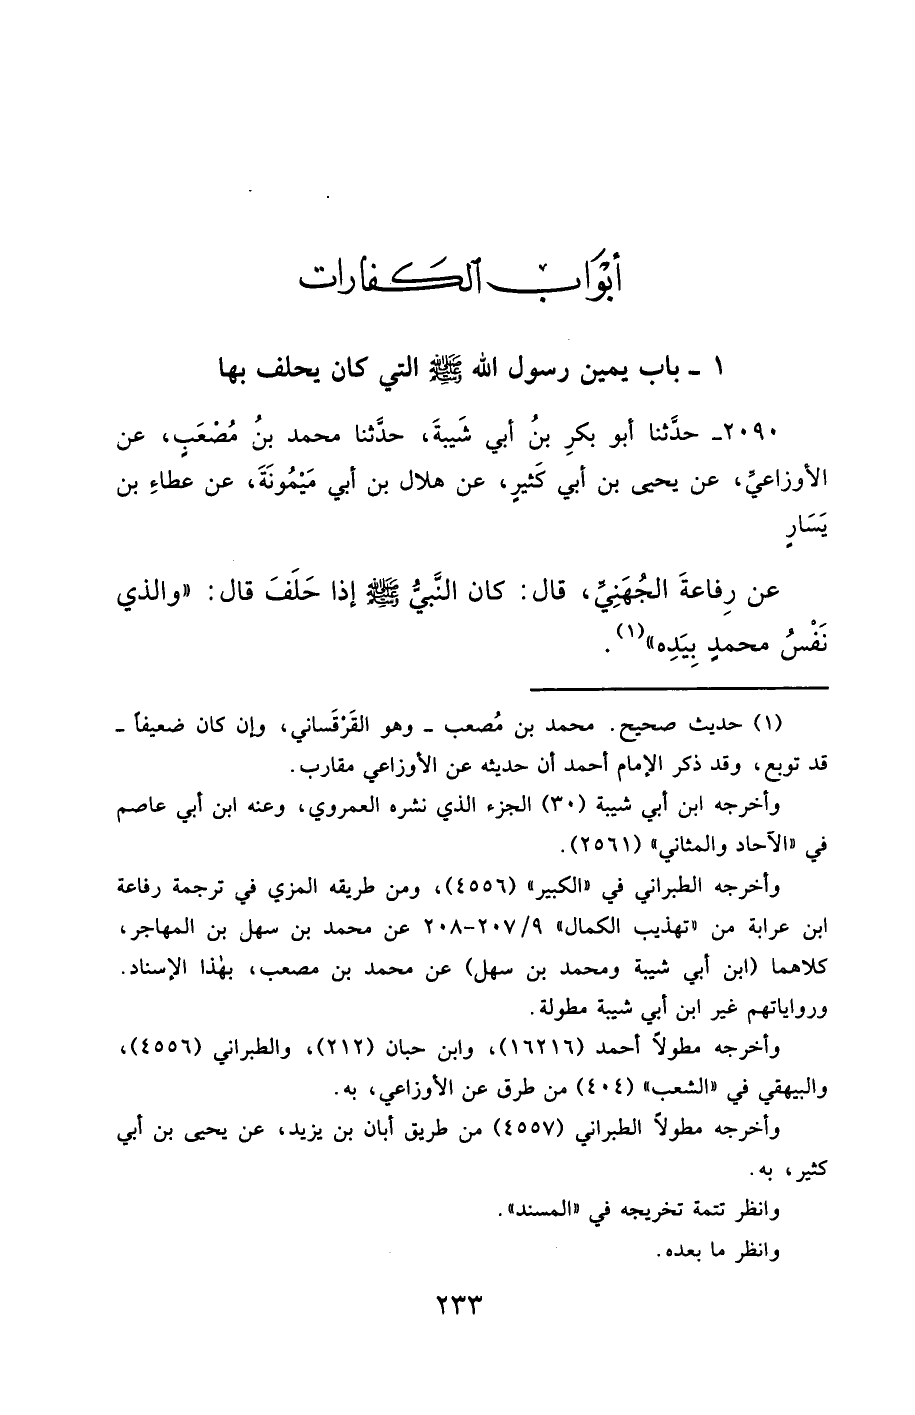 أبْوَاب الكَفارات
١ ـ باب يمين رسول الله ﷺ التي كان يحلف بها
٢٠٩٠ـ حدَّثنا أبو بكرِ بنُ أبي شَيبةَ، حدَّثنا محمد بنُ مُصْعَبٍ، عن
الأوزاعيِّ، عن يحيى بن أبي كَثيرٍ، عن هلال بن أبي مَيْمُونَةَ، عن عطاءِ بن
يَسَارٍ
عن رِفاعةَ الجُهَنِيِّ، قال: كان النَّبيُّ ﷺ إذا حَلَفَ قال: «والذي
نَفْسُ محمدٍ بِيَدِه»(١).
(١) حديث صحيح. محمد بن مُصعب ـ وهو القَرْقَساني، وإن كان ضعيفاً ـ
قد توبع، وقد ذكر الإمام أحمد أن حديثه عن الأوزاعي مقارب.
وأخرجه ابن أبي شيبة (٣٠) الجزء الذي نشره العمروي، وعنه ابن أبي عاصم
في «الآحاد والمثاني» (٢٥٦١).
وأخرجه الطبراني في «الكبير» (٤٥٥٦)، ومن طريقه المزي في ترجمة رفاعة
ابن عرابة من «تهذيب الكمال» ٩/ ٢٠٧-٢٠٨ عن محمد بن سهل بن المهاجر،
كلاهما (ابن أبي شيبة ومحمد بن سهل) عن محمد بن مصعب، بهٰذا الإسناد.
ورواياتهم غير ابن أبي شيبة مطولة.
وأخرجه مطولاً أحمد (١٦٢١٦)، وابن حبان (٢١٢)، والطبراني (٤٥٥٦)،
والبيهقي في «الشعب» (٤٠٤) من طرق عن الأوزاعي، به.
وأخرجه مطولاً الطبراني (٤٥٥٧) من طريق أبان بن يزيد، عن يحيى بن أبي
كثير، به.
وانظر تتمة تخريجه في «المسند».
وانظر ما بعده.
٢٣٣